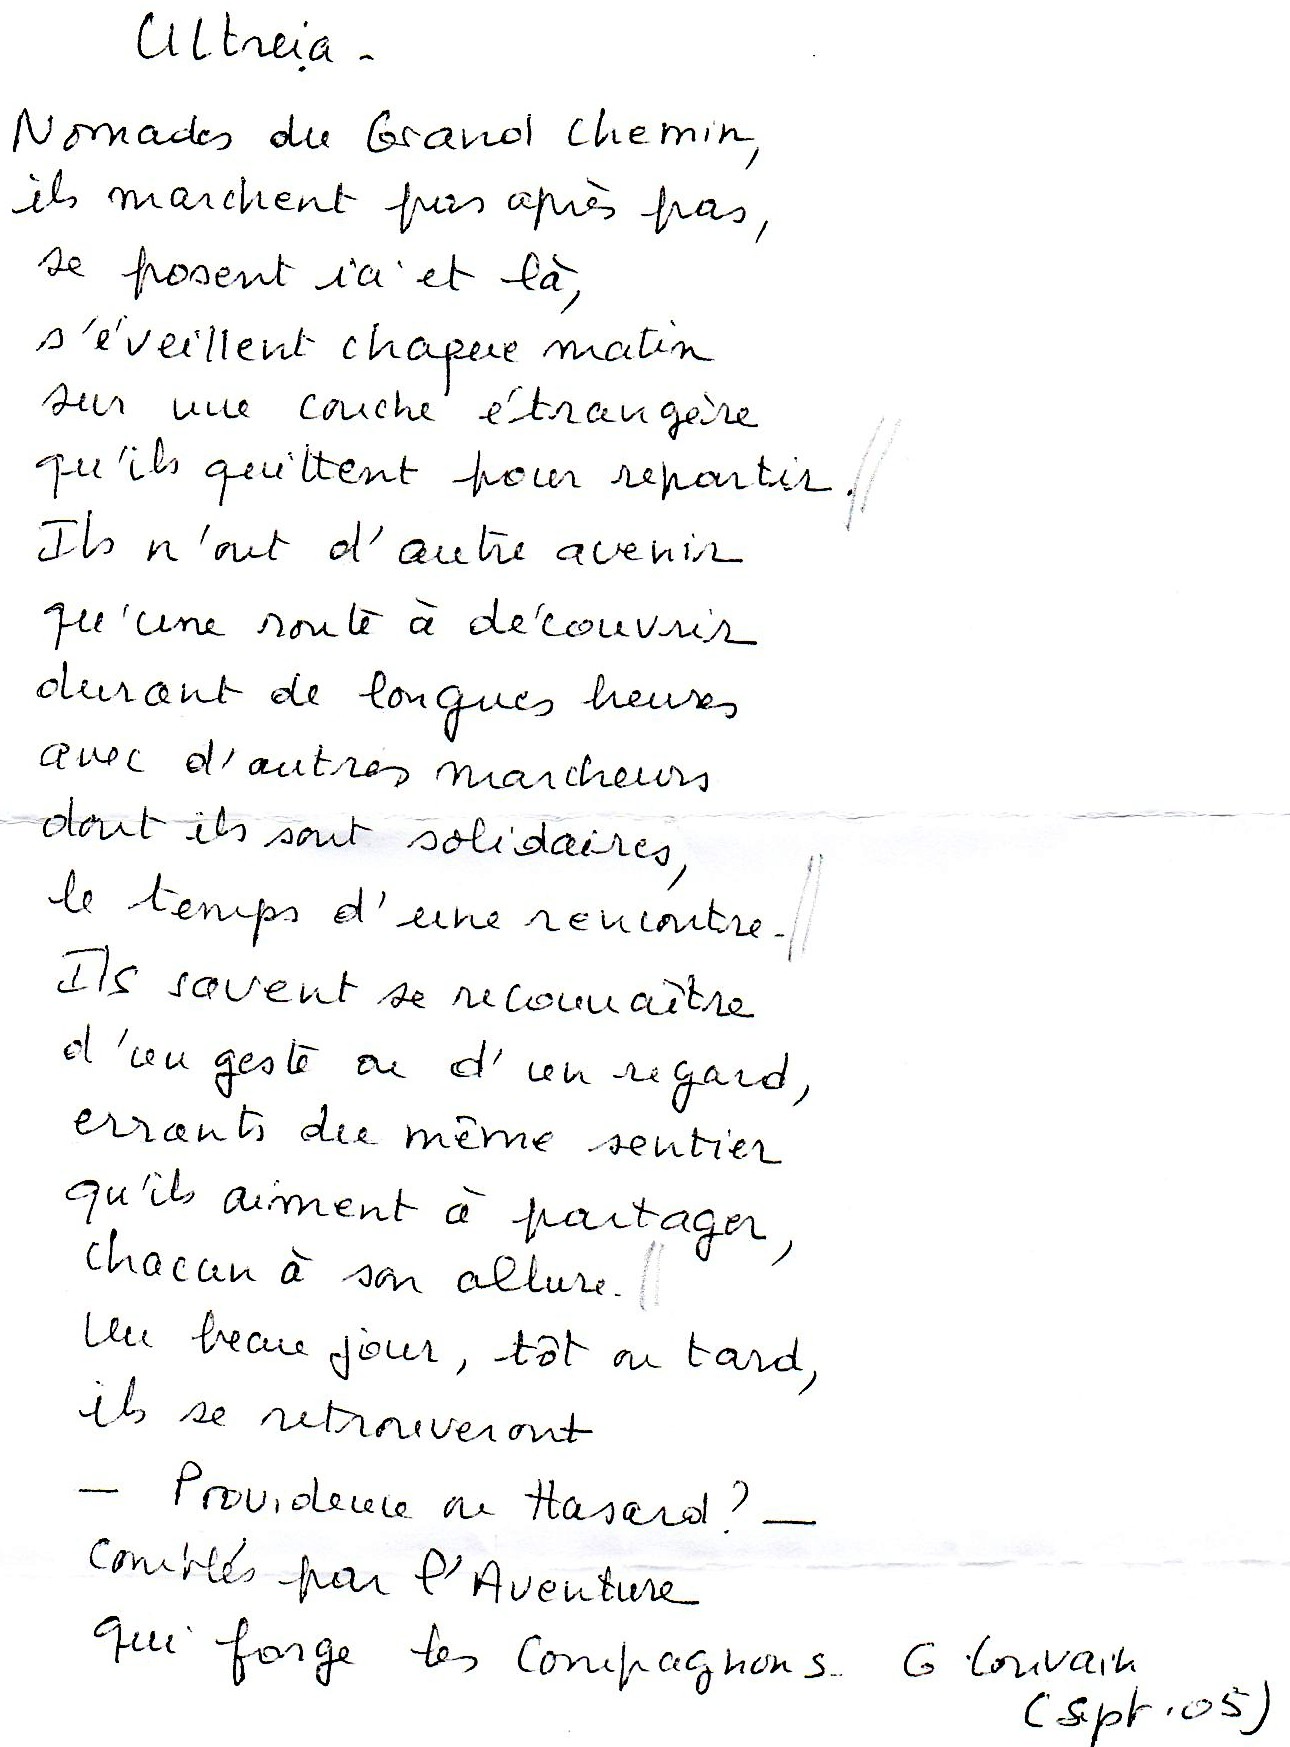 Ultreia -
Nomades du Grand Chemin,
ils marchent pas après pas,
se posent ici et là,
s'éveillent chaque matin
sur une couche étrangère
qu'ils quittent pour repartir. //
Ils n'ont d'autre avenir
qu'une route à découvrir
durant de longues heures
avec d'autres marcheurs
dont ils sont solidaires,
le temps d'une rencontre. //
Ils savent se reconnaître
d'un geste ou d'un regard,
errants du même sentier
qu'ils aiment à partager,
chacun à son allure. //
Un beau jour, tôt ou tard,
ils se retrouveront
— Providence ou Hasard ? —
comblés par l'Aventure
qui forge les Compagnons. G Louvain
(Sept. 05)